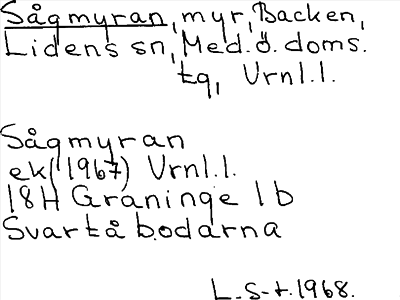 Sågmyran, myr, Backen,
Lidens sn, Med.ö. doms.
tg, Vrnl.l.
Sågmyran
ek(1967) Vrnl.l.
18H Graninge 1b
Svartåbodarna
L.S-t.1968.